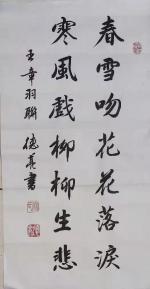 春雪吻花花落淚
寒風戲柳柳生悲
王章羽聯
德義書